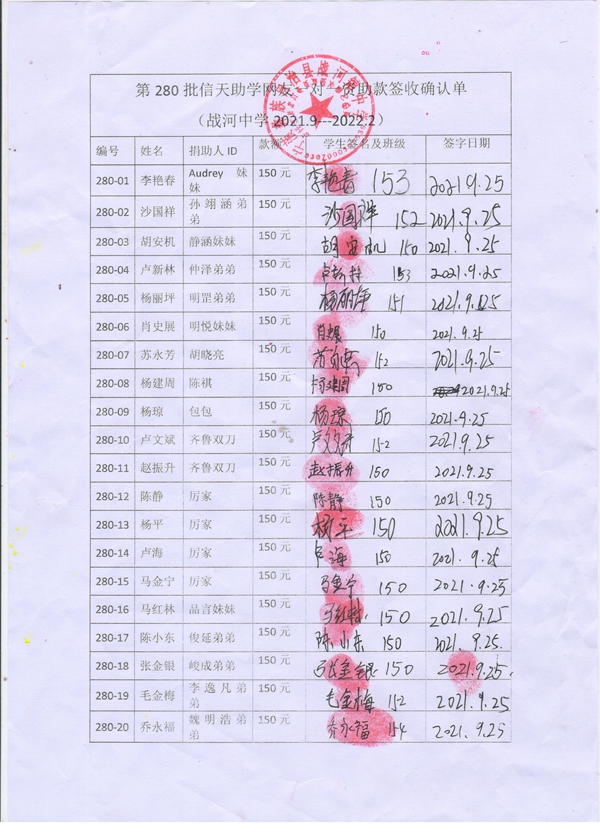 第 280 批信天助学网友 对 资助款签收确认单
（战河中学 2021.9---2022.2）
编号 姓名 捐助人 ID 款额 学生签名及班级 签字日期
280-01 李艳春 Audrey 妹妹 150 元 李艳春 153 2021 9.25
280-02 沙国祥 孙翊涵弟弟 150 元 沙国祥 152 2021.9.25
280-03 胡安机 静涵妹妹 150 元 胡安机 150 2021.9.25
280-04 卢新林 仲泽弟弟 150 元 卢新林 153 2021.9.25
280-05 杨丽坪 明罡弟弟 150 元 杨丽坪 151 2021.9.25
280-06 肖史展 明悦妹妹 150 元 150 2021.9.25
280-07 苏永芳 胡晓亮 150 元 152 2021.9.25
280-08 杨建周 陈祺 150 元 杨建周 150 2021.9.25
280-09 杨琼 包包 150 元 杨琼 150 2021.9.25
280-10 卢文斌 齐鲁双刀 150 元 卢文斌 152 2021.9.25
280-11 赵振升 齐鲁双刀 150 元 赵振升 150 2021.9.25
280-12 陈静 厉家 150 元 陈静 150 2021.9.25
280-13 杨平 厉家 150 元 杨平 150 2021.9.25
280-14 卢海 厉家 150 元 卢海 150 2021.9.25
280-15 马金宁 厉家 150 元 马金宁 150 2021.9.25
280-16 马红林 品言妹妹 150 元 马红林 150 2021.9.25
280-17 陈小东 俊延弟弟 150 元 陈小东 150 2021.9.25.
280-18 张金银 峻成弟弟 150 元 张金银 150 2021.9.25.
280-19 毛金梅 李逸凡弟弟 150 元 毛金梅 152 2021.9.25
280-20 乔永福 魏明浩弟弟 150 元 乔永福 154 2021.9.25